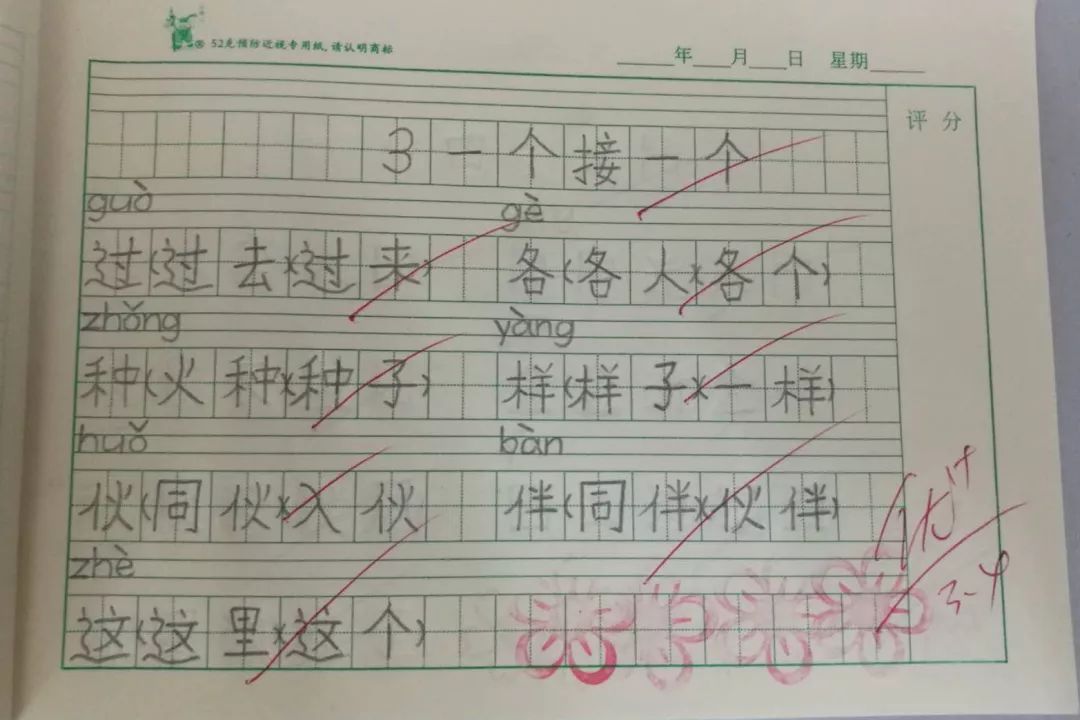 52克预防近视专用纸,请认明商标
年 月 日 星期
评分
3 一个接一个
guò gè
过(过去)(过来) 各(各人)(各个)
zhǒng yàng
种(火种)(种子) 样(样子)(一样)
huǒ bàn
伙(同伙)(入伙) 伴(同伴)(伙伴)
zhè
这(这里)(这个)
优+
3-4